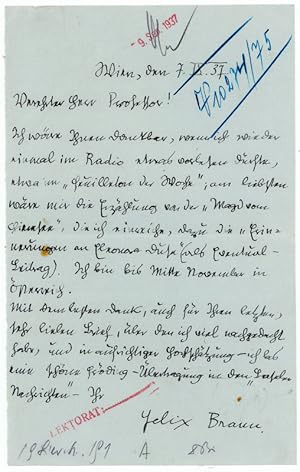 - 9. Sep. 1937
Wien, den 7. IX. 37.
Verehrter Herr Professor!
Ich wäre Ihnen dankbar, wenn ich wieder
einmal im Radio etwas vorlesen dürfte,
etwa im "Feuilleton der Woche", am liebsten
wäre mir die Erzählung von der "Magd vom
die ich einreiche, dazu die "Erin-
nerungen an Eleonora Duse (als Eventual-
Beitrag). Ich bin bis Mitte November in
Österreich.
Mit dem besten Dank, auch für Ihren letzten,
sehr lieben Brief, über den ich viel nachgedacht
habe, und in aufrichtiger Hochschätzung - ich las
eine schöne Übertragung in den "Basler
Nachrichten" - Ihr
Felix Braun.
LEKTORAT:
A